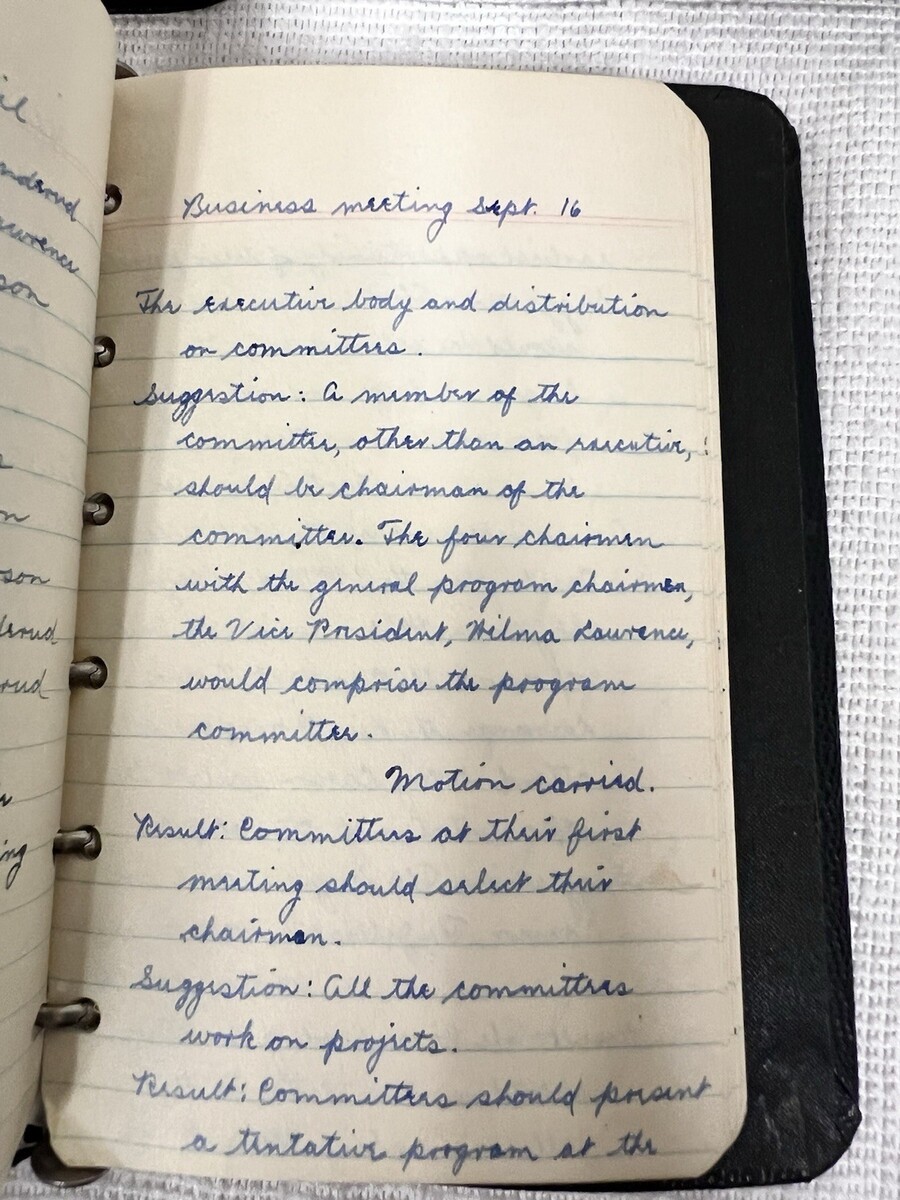 Business meeting Sept. 16
The executive body and distribution
on committees.
Suggestion: A member of the
committee, other than an executive,
should be chairman of the
committee. The four chairmen
with the general program chairman,
the Vice President, Wilma Lawrence,
would comprise the program
committee.
Motion carried.
Result: Committees at their first
meeting should select their
chairman.
Suggestion: All the committees
work on projects.
Result: Committees should present
a tentative program at the